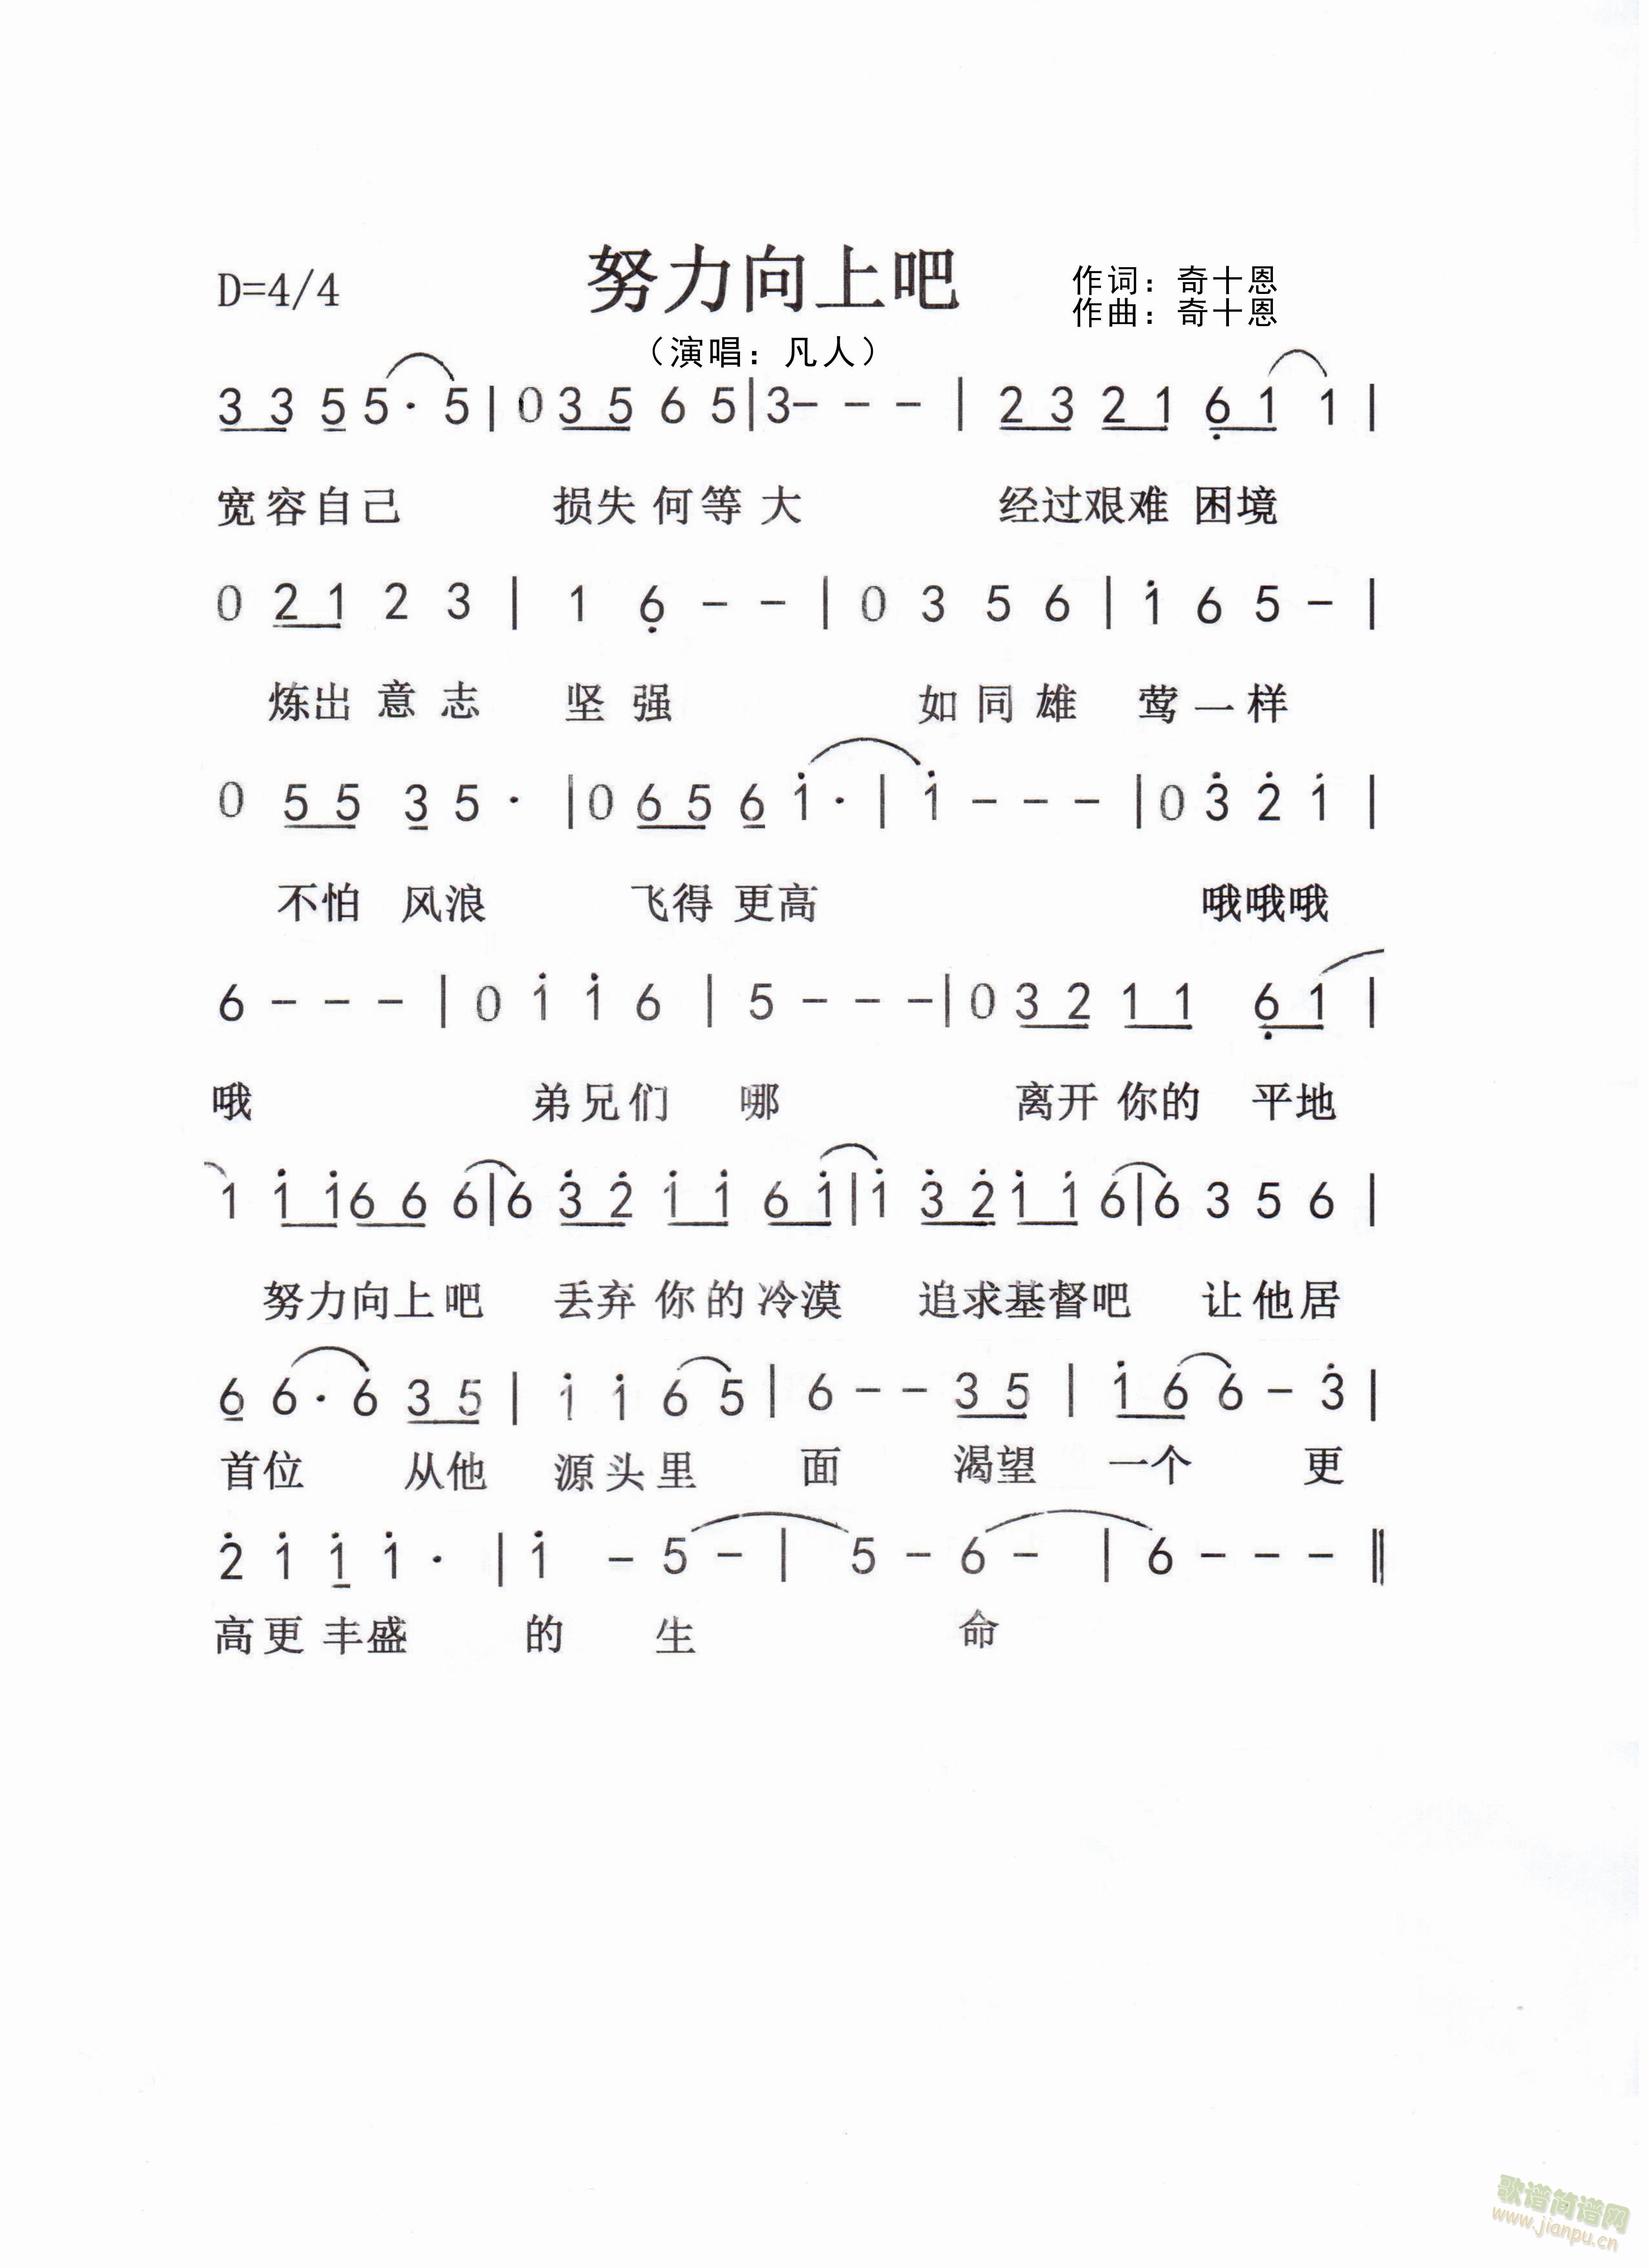 努力向上吧
D=4/4
作词：奇十恩
作曲：奇十恩
（演唱：凡人）
3 3 5 5· 5 | 0 3 5 6 5 | 3 - - - | 2 3 2 1 6̣ 1 1 |
宽容自己 损失何等大 经过艰难困境
0 2 1 2 3 | 1 6̣ - - | 0 3 5 6 | 1̇ 6 5 - |
炼出意志 坚强 如同雄 莺一样
0 5 5 3 5 · | 0 6 5 6 1̇ · | 1̇ - - - | 0 3̇ 2̇ 1̇ |
不怕 风浪 飞得更高 哦哦哦
6 - - - | 0 1̇ 1̇ 6 | 5 - - - | 0 3 2 1 1 6̣ 1 |
哦 弟兄们 哪 离开你的 平地
1 1̇ 1̇ 6 6 6 | 6 3̇ 2̇ 1̇ 1̇ 6 1̇ | 1̇ 3̇ 2̇ 1̇ 1̇ 6 | 6 3 5 6 |
努力向上吧 丢弃你的冷漠 追求基督吧 让他居
6 6 · 6 3 5 | 1̇ 1̇ 6 5 | 6 - - 3 5 | 1̇ 6 6 - 3̇ |
首位 从他 源头里 面 渴望 一个 更
2̇ 1̇ 1̇ 1̇ · | 1̇ - 5 - | 5 - 6 - | 6 - - - ‖
高更丰盛 的 生 命
歌谱简谱网
www.jianpu.cn